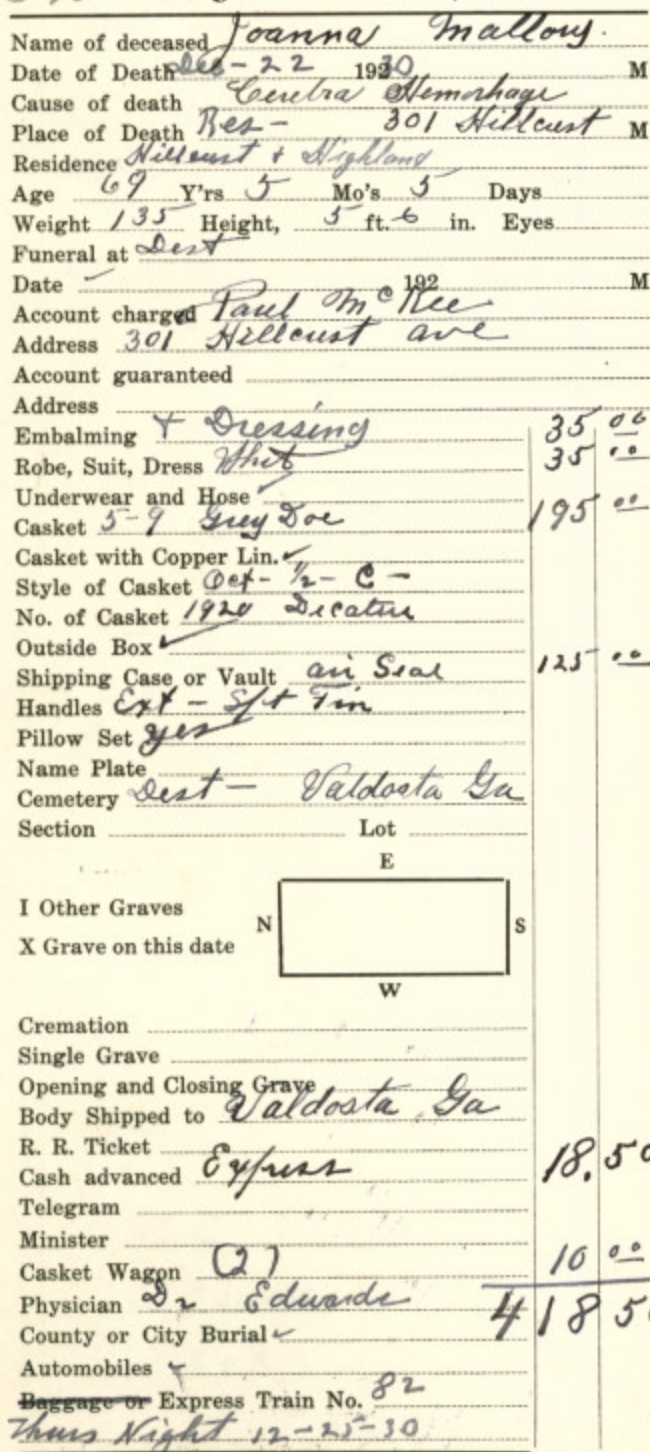 Name of deceased Joanna Mallory.
Date of Death Dec - 22 1930 M
Cause of death Cerebra Hemorhage
Place of Death Res - 301 Hillcrest M
Residence Hillcrest + Highland
Age 69 Y'rs 5 Mo's 5 Days
Weight 135 Height, 5 ft. 6 in. Eyes
Funeral at Dest
Date 192 M
Account charged Paul McKee
Address 301 Hillcrest ave
Account guaranteed
Address
Embalming + Dressing 35 00
Robe, Suit, Dress Whit 35 00
Underwear and Hose
Casket 5-9 Grey Doe 195 00
Casket with Copper Lin.
Style of Casket Oct - 1/2 - C -
No. of Casket 1920 Decatur
Outside Box
Shipping Case or Vault air Seal 125 00
Handles Ext -
Pillow Set yes
Name Plate
Cemetery Dest - Valdosta Ga
Section Lot
E
I Other Graves
N S
X Grave on this date
W
Cremation
Single Grave
Opening and Closing Grave
Body Shipped to Valdosta, Ga
R. R. Ticket
Cash advanced Express 18.50
Telegram
Minister
Casket Wagon (2) 10 00
Physician Dr Edwards 418 50
County or City Burial
Automobiles
Baggage or Express Train No. 82
Thurs Night 12-25-30